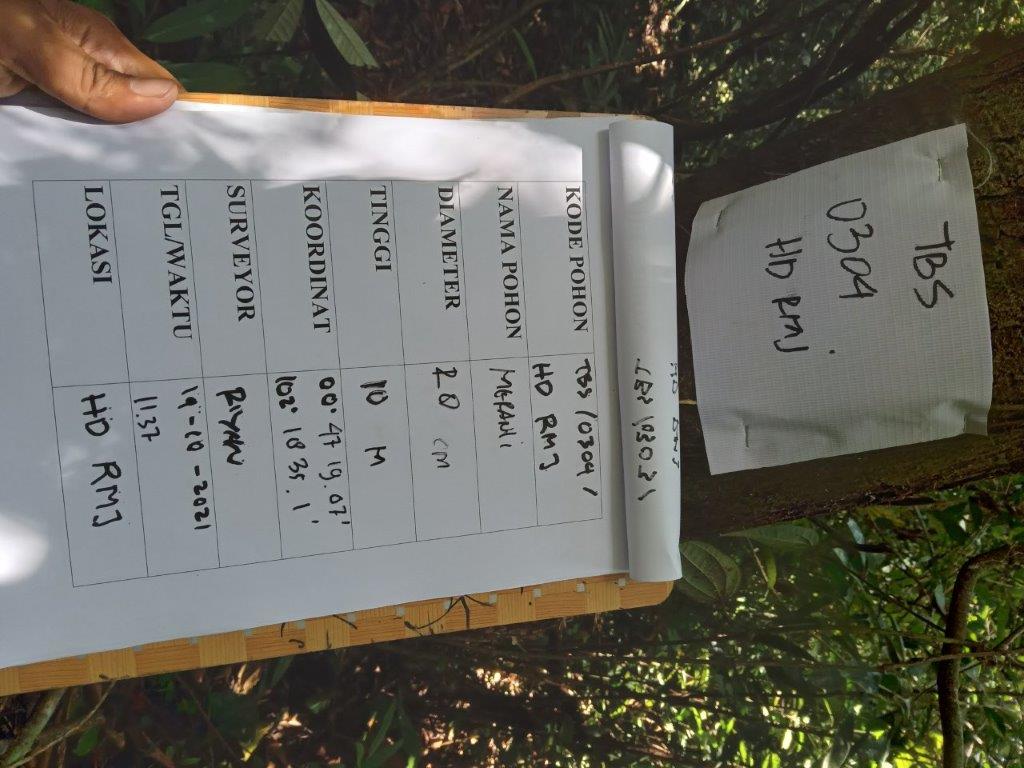 TBS
0304
HD RMJ
KODE POHON TBS / 0304 /
HD RMJ
NAMA POHON MERANTI
DIAMETER 20 CM
TINGGI 10 M
KOORDINAT 00° 47 19.07'
102° 18 35.1'
SURVEYOR RIYAN
TGL/WAKTU 19-10-2021
11.37
LOKASI HD RMJ